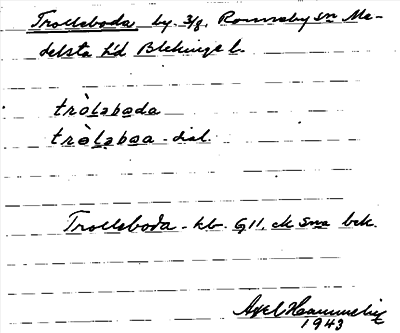 Trollsboda by. 3/8. Ronneby sn Me-
delsta hd Blekinge l.
tròlabada
tròlabaa - dial.
Trollsboda - kb. G11, ek sma bek.
Axel
1943